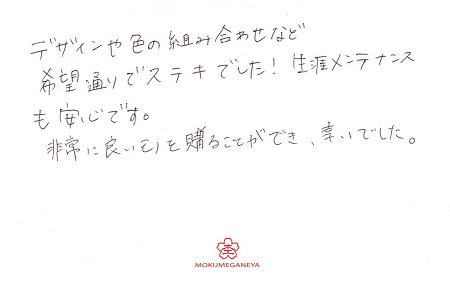 デザインや色の組み合わせなど
希望通りでステキでした！生涯メンテナンス
も安心です。
非常に良いモノを贈ることができ、幸いでした。
MOKUMEGANEYA